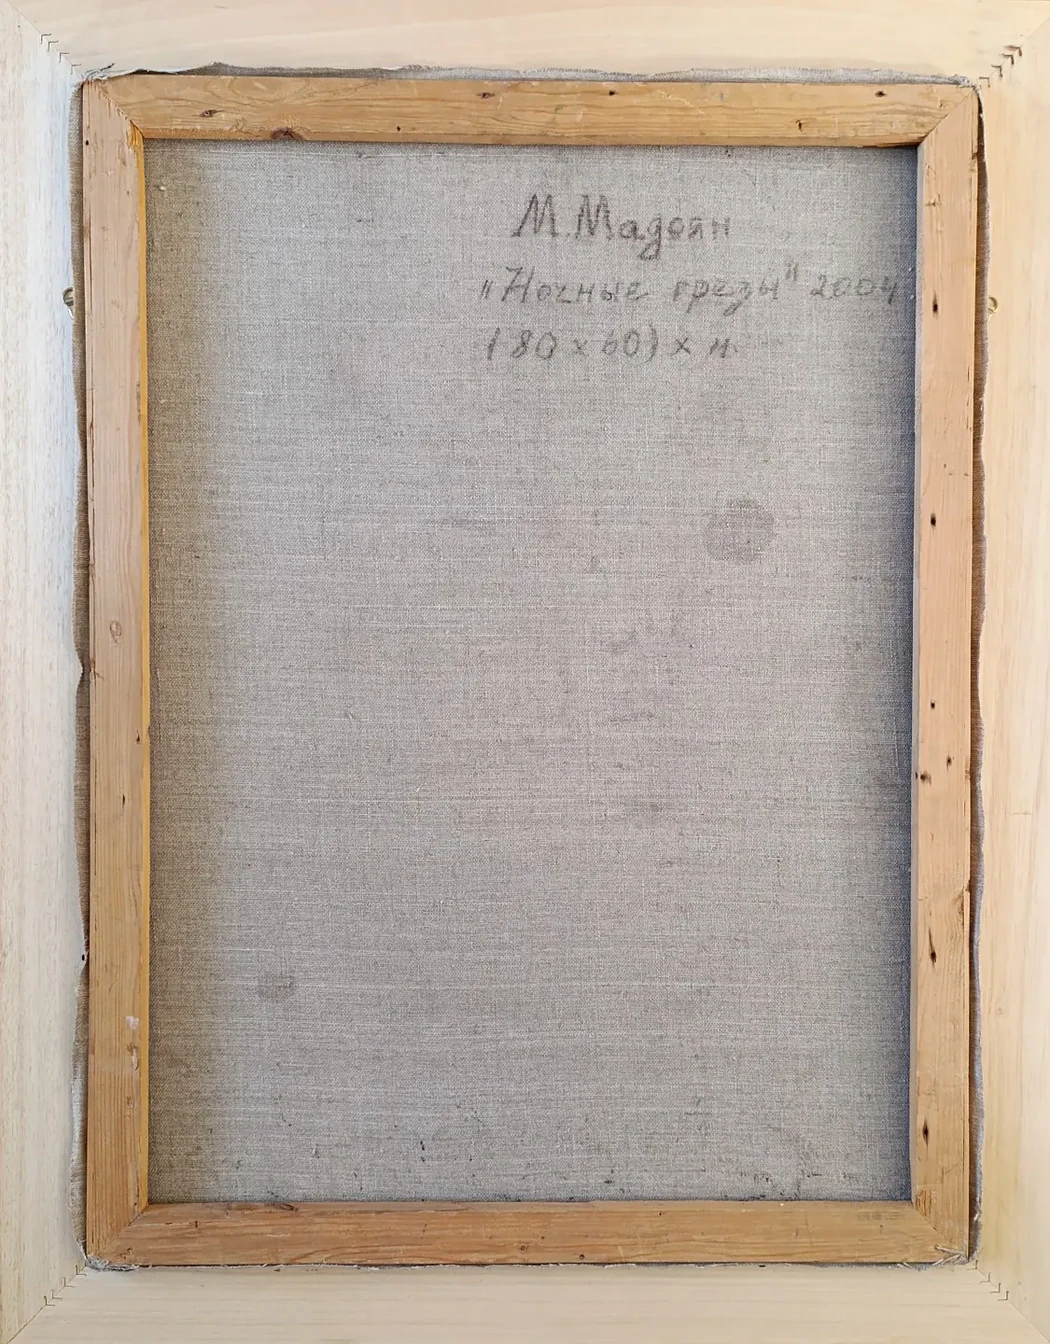 М. Мадоян
„Ночные грезы" 2004
(80 х 60) х м.